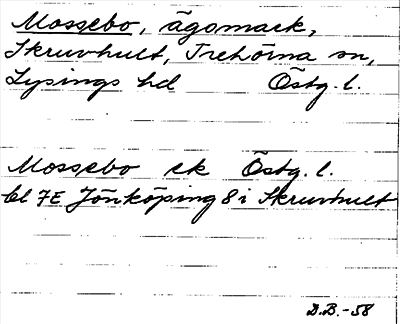 Mossebo, ägomark,
Skruvhult, Trehörna sn,
Lysings hd Östg. l.
Mossebo ek Östg. l.
bl 7E Jönköping 8 i Skruvhult
D.B.-58